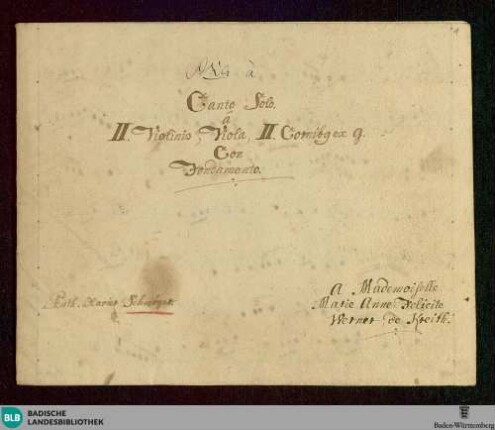 Aria à
Canto Solo.
a
II. Violinis, Viola, II. Corni ex g.
Con
Fondamento.
Schurpek
A Mademoiselle
Marie Anne Felicite
Werner de Kreith.
BLB BADISCHE
LANDESBIBLIOTHEK
Baden-Württemberg